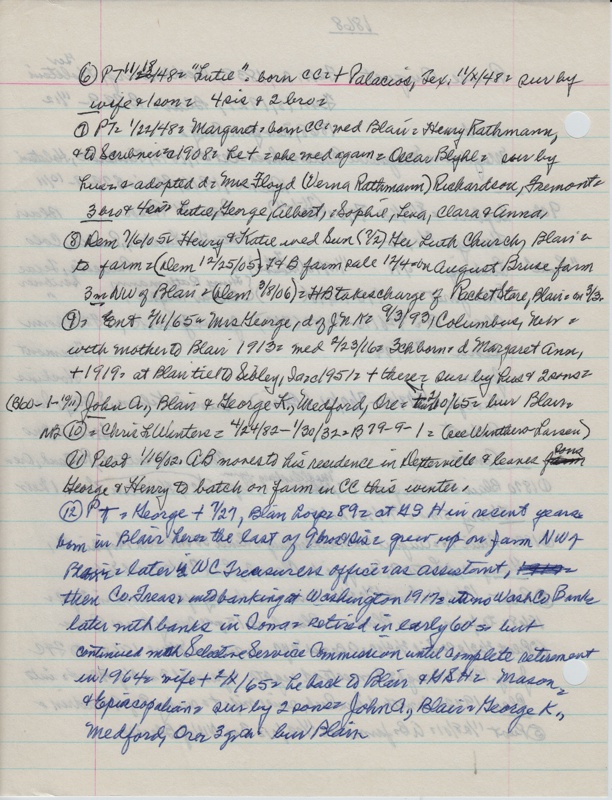 1868
⑥ PT 11/18/48= "Lutie"= born CC= + Palacios, Tex, 11/X/48= sur by
wife & 1 son= 4 sis & 2 bro=
⑦ PT= 1/22/48= Margaret= born CC= med Blair= Henry Rathmann,
& to Scribner= c1908= he+= she med again= Oscar Beyhl= sur by
hus= & adopted d= Mrs Floyd (Verna Rathmann) Richardson, Fremont=
3 bro & 4 sis= Lutie, George, Albert, =Sophie, Lena, Clara & Anna,
⑧ Dem 7/6/05= Henry & Katie wed Sun (7/2) Ger Luth Church, Blair=
to farm= (Dem 12/25/05)= H&B farm sale 12/4= on August Bruse farm
3 m NW of Blair= (Dem 3/8/06)= HB takes charge of Racket Store, Blair= on 3/3=
⑨= Ent 2/11/65= Mrs George, d of J N N= 9/3/93, Columbus, Neb=
with mother to Blair 1913= med 2/23/16= 3 ch born= d Margaret Ann,
+ 1919= at Blair til to Sibley, Ia= c1951= + there= sur by hus & 2 sons=
(B60-1-1911) John A., Blair & George K., Medford, Ore= 2/10/65= bur Blair=
No ⑩= Chris L Winters= 4/24/82-1/30/32= B 79-9-1= (see Winters-Larsen)
⑪ Pilot 1/16/02= AB moves to his residence in Dexterville & leaves sons
George & Henry to batch on farm in CC this winter.
⑫ PT= George + 7/27, Blair 89= at GSH in recent years=
born in Blair he= the last of 9 bro & sis= grew up on farm NW of
Blair= later in WC Treasurers office= as assistant,
then Co Treas= into banking at Washington 1917= Wash Co Bank
later with banks in Iowa= retired in early 60's= but
continued with Selective Service Commission until complete retirement
in 1964= wife + 2/X/65= he back to Blair & GSH= Mason=
& Episcopalian= sur by 2 sons= John A., Blair= George K.,
Medford, Ore= 3 gch= bur Blair